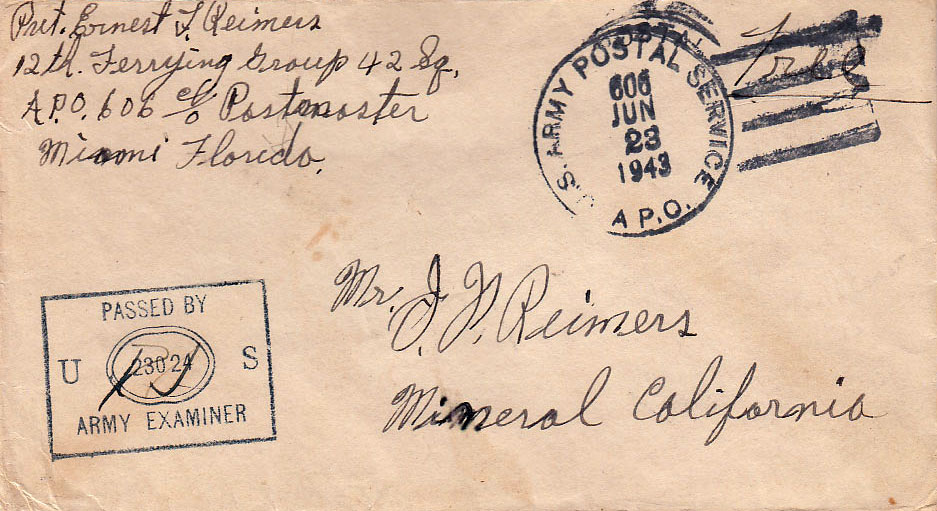 Pvt. Ernest F. Reimers
12th. Ferrying Group 42 Sq.
A.P.O. 606 c/o Postmaster
Miami Florida.
U.S. ARMY POSTAL SERVICE
606
JUN
23
1943
A P.O.
Free
Mr. J. F. Reimers
Mineral California
PASSED BY
U 23024 S
ARMY EXAMINER